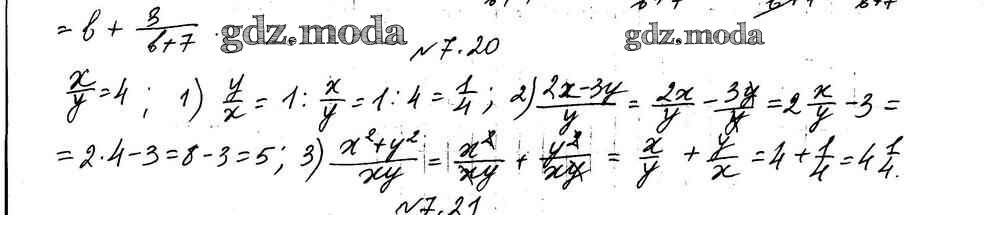 = b + 3/(b+7) gdz.moda gdz.moda
№7.20
x/y = 4; 1) y/x = 1 : x/y = 1 : 4 = 1/4; 2) (2x-3y)/y = 2x/y - 3y/y = 2 x/y - 3 =
= 2·4-3=8-3=5; 3) (x²+y²)/xy = x²/xy + y²/xy = x/y + y/x = 4 + 1/4 = 4 1/4.
№7.21